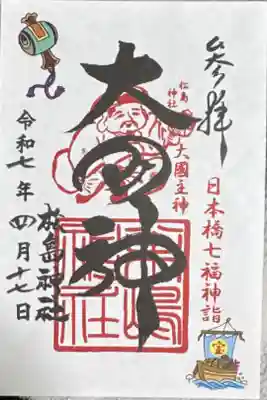 参拝
日本橋七福神詣
松島
神社
大國主神
大国神
松島神社
令和七年四月十七日
宝